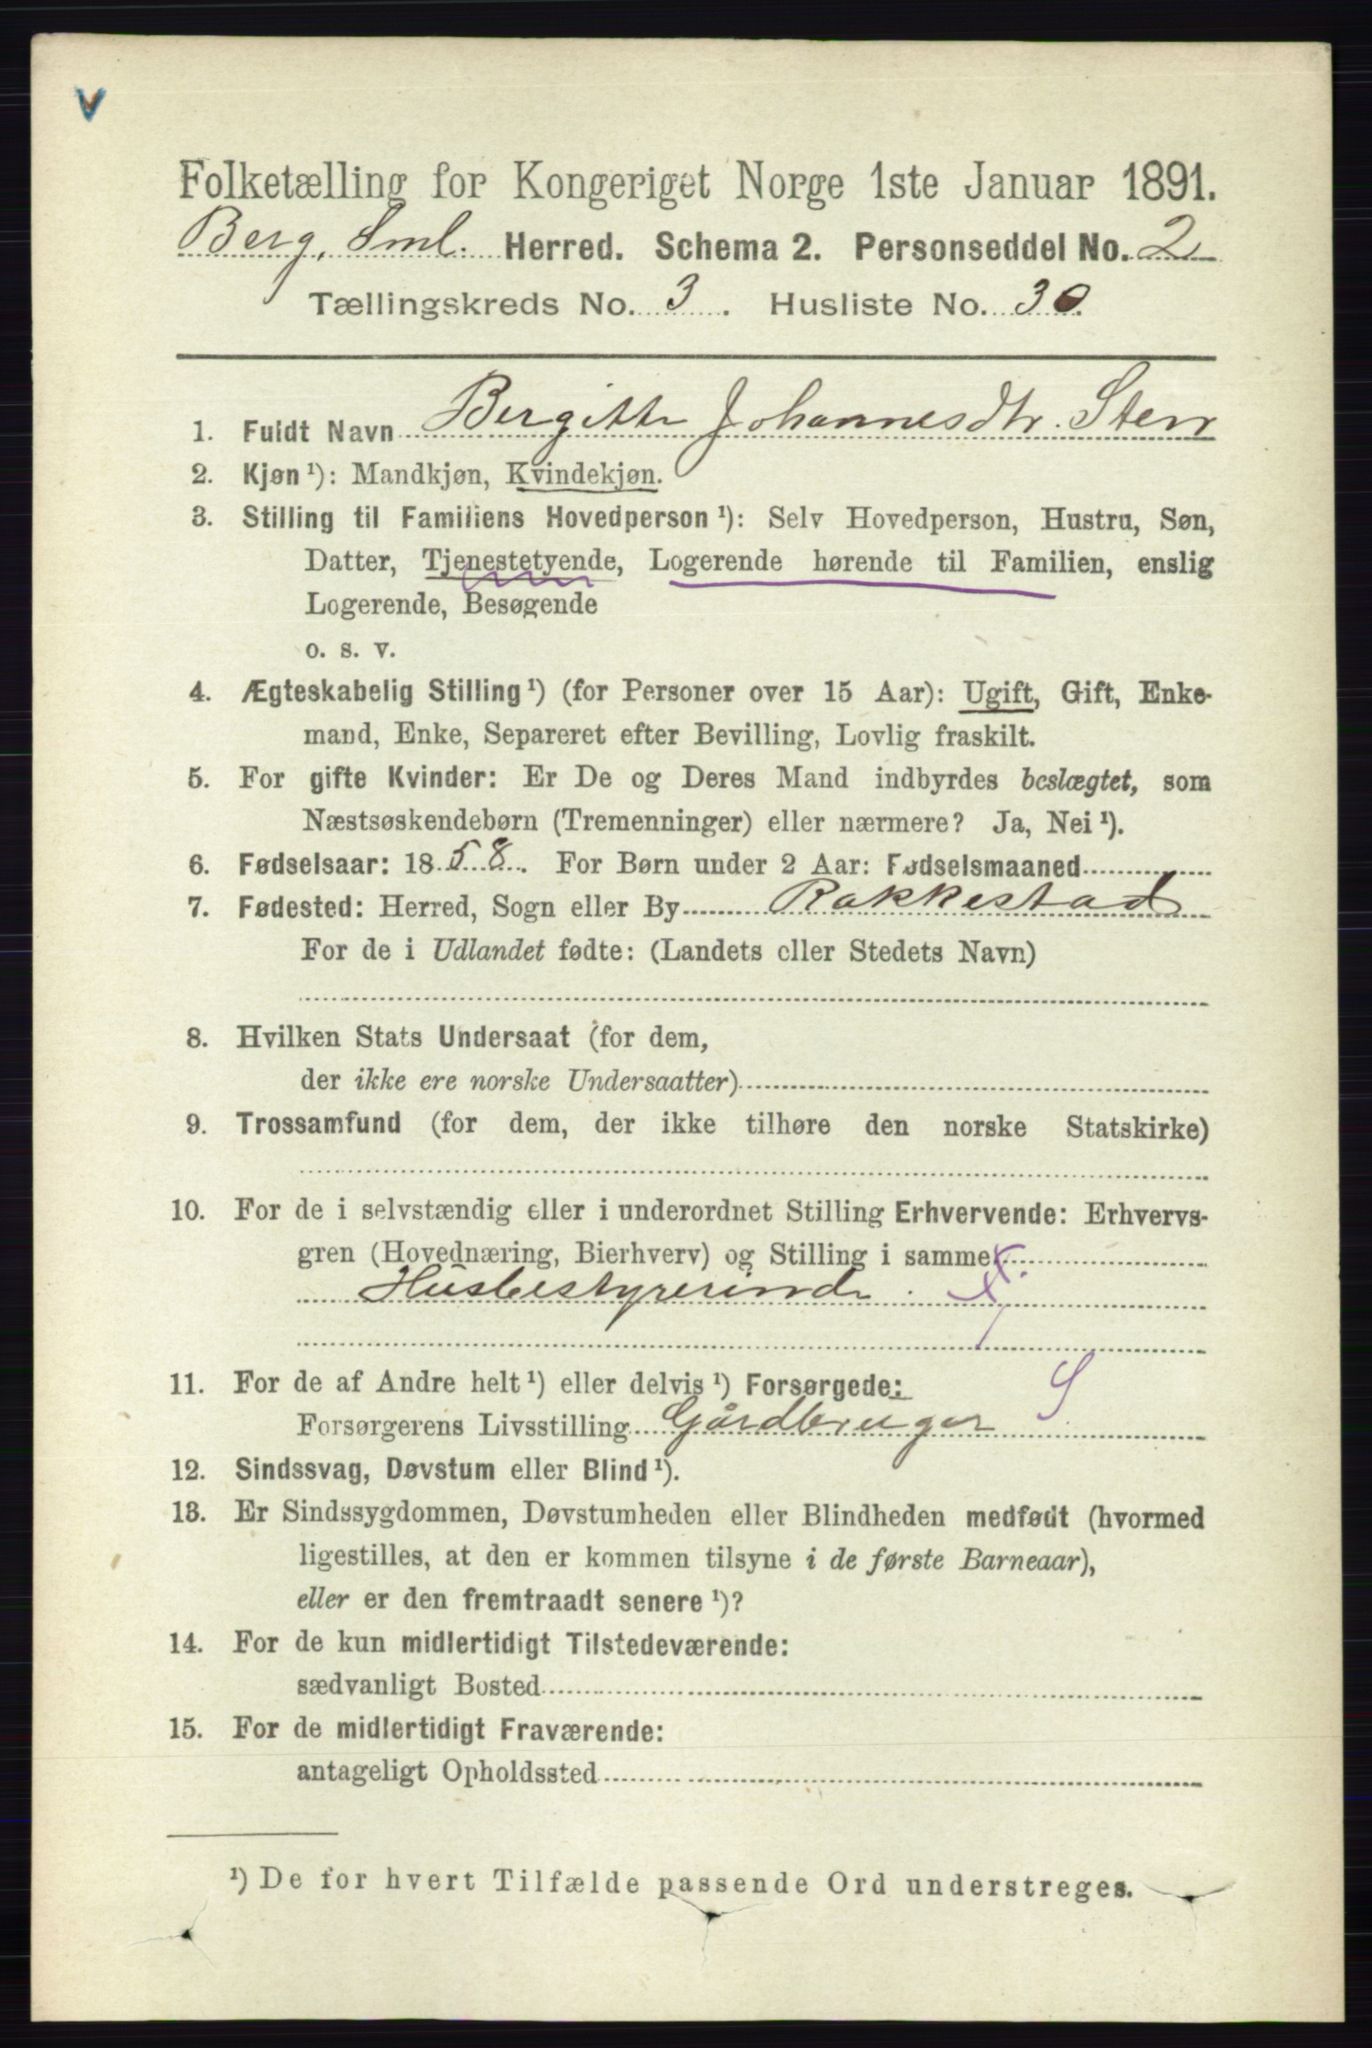 v
Folketælling for Kongeriget Norge 1ste Januar 1891.
Berg, Sml. Herred. Schema 2. Personseddel No. 2
Tællingskreds No. 3. Husliste No. 30.
1. Fuldt Navn Bergitte Johannesdtr. Sten
2. Kjøn ¹): Mandkjøn, Kvindekjøn.
3. Stilling til Familiens Hovedperson ¹): Selv Hovedperson, Hustru, Søn,
Datter, Tjenestetyende, Logerende hørende til Familien, enslig
Logerende, Besøgende
o. s. v.
4. Ægteskabelig Stilling ¹) (for Personer over 15 Aar): Ugift, Gift, Enke-
mand, Enke, Separeret efter Bevilling, Lovlig fraskilt.
5. For gifte Kvinder: Er De og Deres Mand indbyrdes beslægtet, som
Næstsøskendebørn (Tremenninger) eller nærmere? Ja, Nei ¹).
6. Fødselsaar: 1858. For Børn under 2 Aar: Fødselsmaaned
7. Fødested: Herred, Sogn eller By Rakkestad
For de i Udlandet fødte: (Landets eller Stedets Navn)
8. Hvilken Stats Undersaat (for dem,
der ikke ere norske Undersaatter)
9. Trossamfund (for dem, der ikke tilhøre den norske Statskirke)
10. For de i selvstændig eller i underordnet Stilling Erhvervende: Erhvervs-
gren (Hovednæring, Bierhverv) og Stilling i samme
Husbestyrerinde. X
11. For de af Andre helt ¹) eller delvis ¹) Forsørgede: S
Forsørgerens Livsstilling Gårdbruger
12. Sindssvag, Døvstum eller Blind ¹).
13. Er Sindssygdommen, Døvstumheden eller Blindheden medfødt (hvormed
ligestilles, at den er kommen tilsyne i de første Barneaar),
eller er den fremtraadt senere ¹)?
14. For de kun midlertidigt Tilstedeværende:
sædvanligt Bosted
15. For de midlertidigt Fraværende:
antageligt Opholdssted
¹) De for hvert Tilfælde passende Ord understreges.